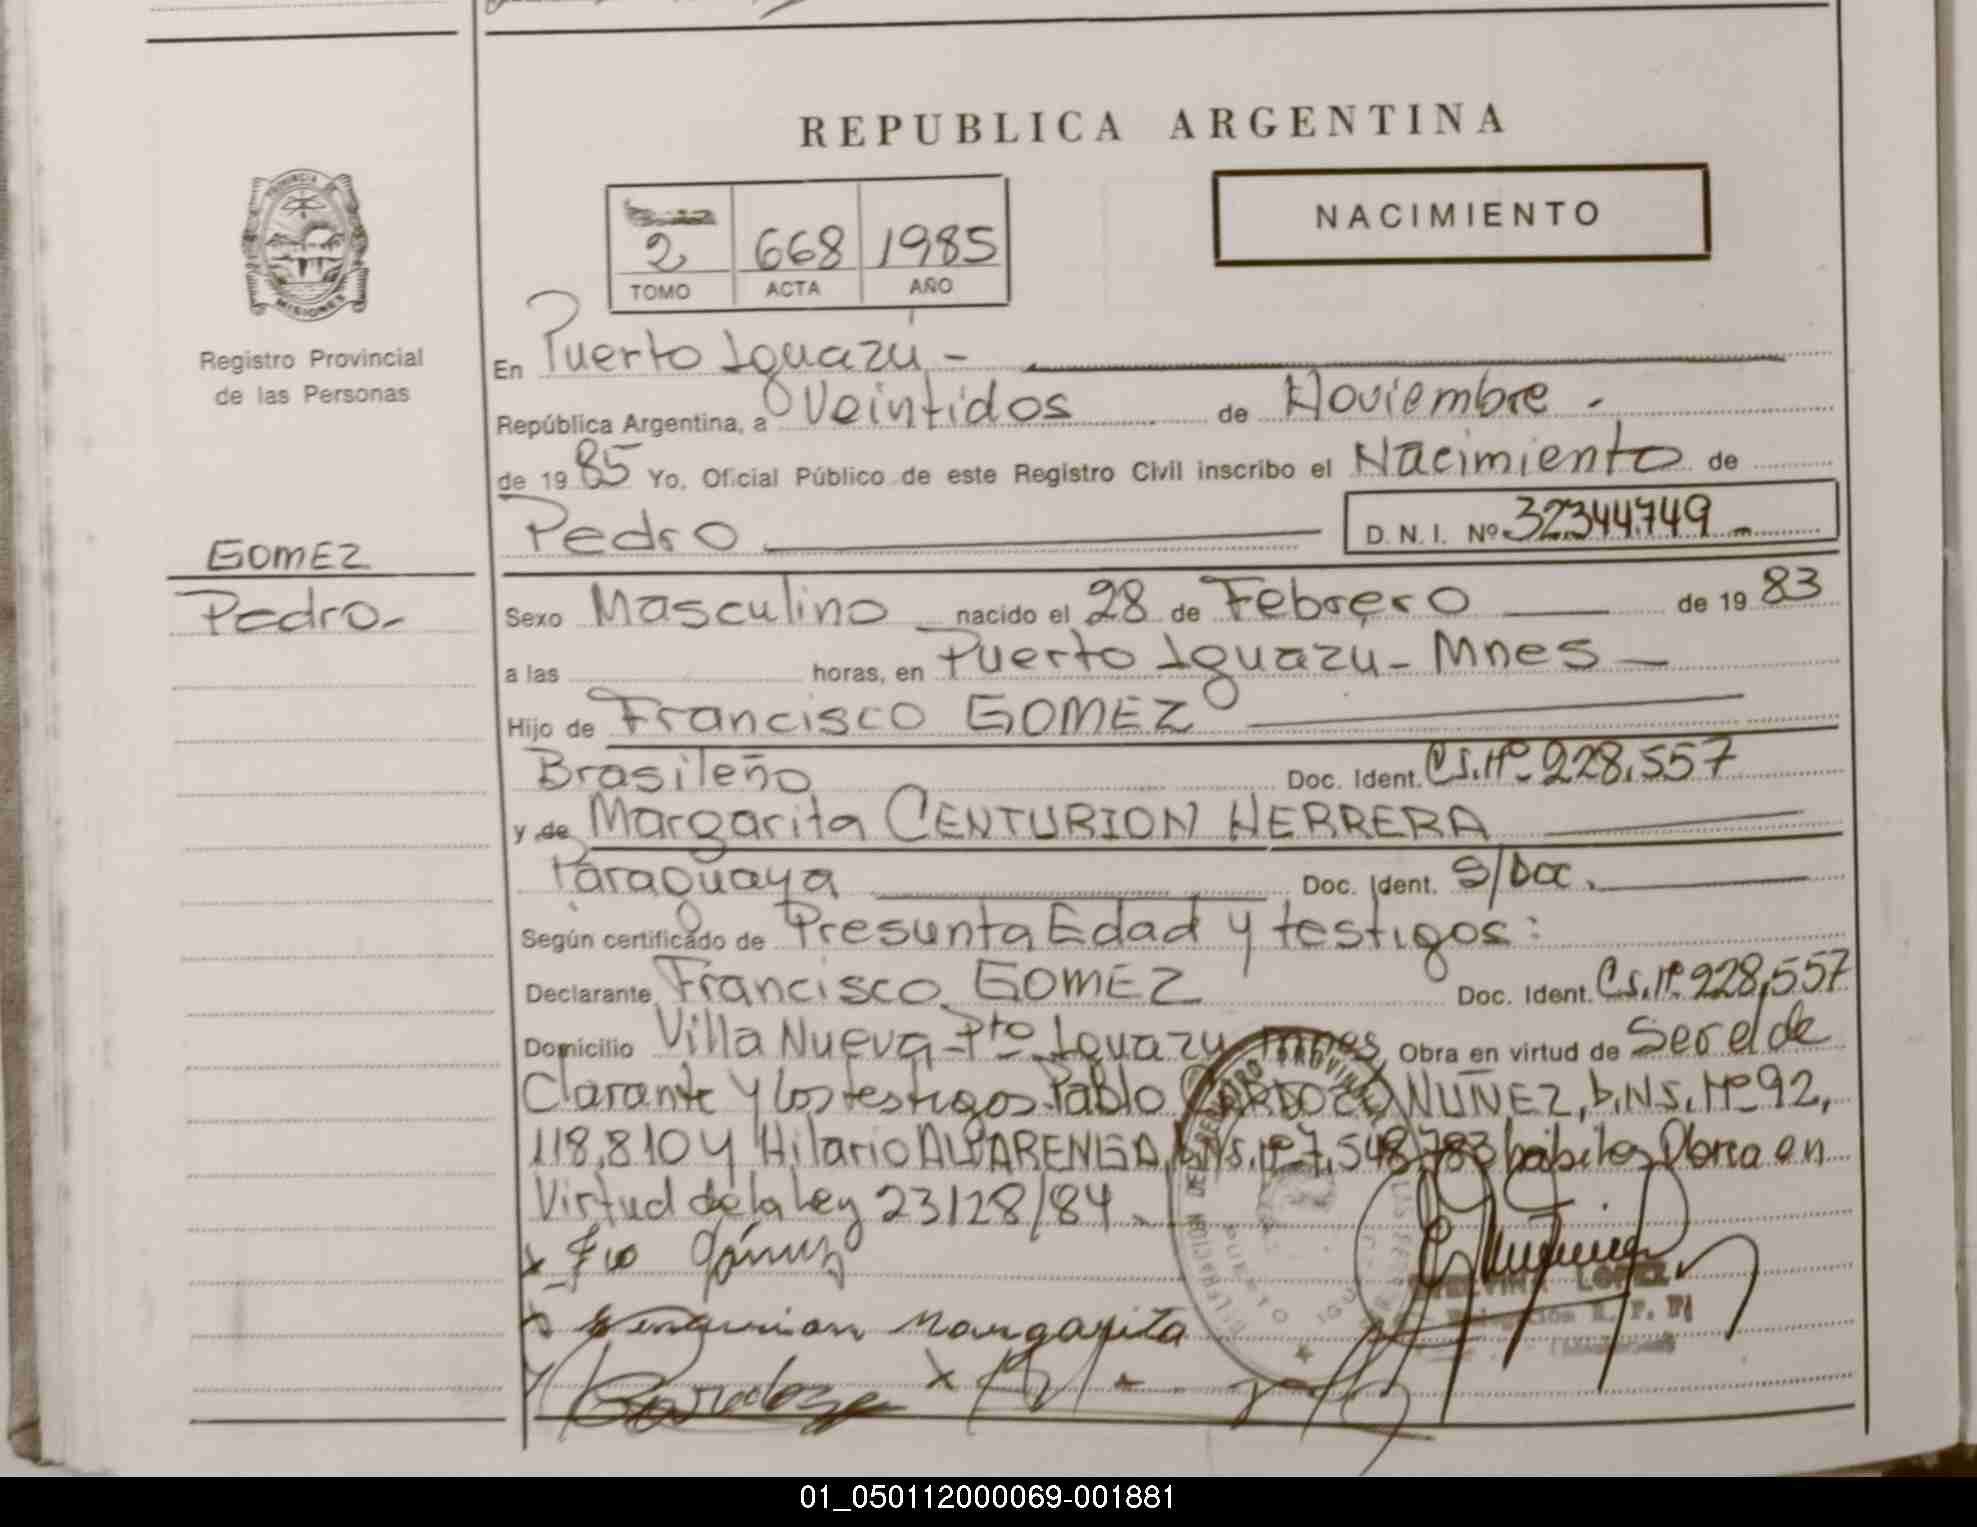 REPUBLICA ARGENTINA
NACIMIENTO
2 668 1985
TOMO ACTA AÑO
PROVINCIA DE
MISIONES
Registro Provincial
de las Personas
GOMEZ
Pedro-
En Puerto Iguazú -
República Argentina, a Veintidos de Noviembre.
de 1985 Yo, Oficial Público de este Registro Civil inscribo el Nacimiento de
Pedro D. N. I. Nº 32.344.749-
Sexo Masculino nacido el 28 de Febrero de 1983
a las horas, en Puerto Iguazú- Mnes
Hijo de Francisco GOMEZ
Brasileño Doc. Ident. CI.Nº 228.557
y de Margarita CENTURION HERRERA
Paraguaya Doc. Ident. S/Doc.
Según certificado de Presunta Edad y testigos:
Declarante Francisco GOMEZ Doc. Ident. CI.Nº 228,557
Domicilio Villa Nueva-Pto Iguazu mnes Obra en virtud de Ser el de
Clarante y los testigos Pablo CARDOZO NUÑEZ, D.N.I. Nº 92,
118.810 y Hilario ALVARENGA D.N.I. Nº 7,548,783 hábiles Obra en
Virtud de la Ley 23128/84.
x Fco Gómez
x Senturian Margarita
Cardozo x
LOPEZ
01_050112000069-001881